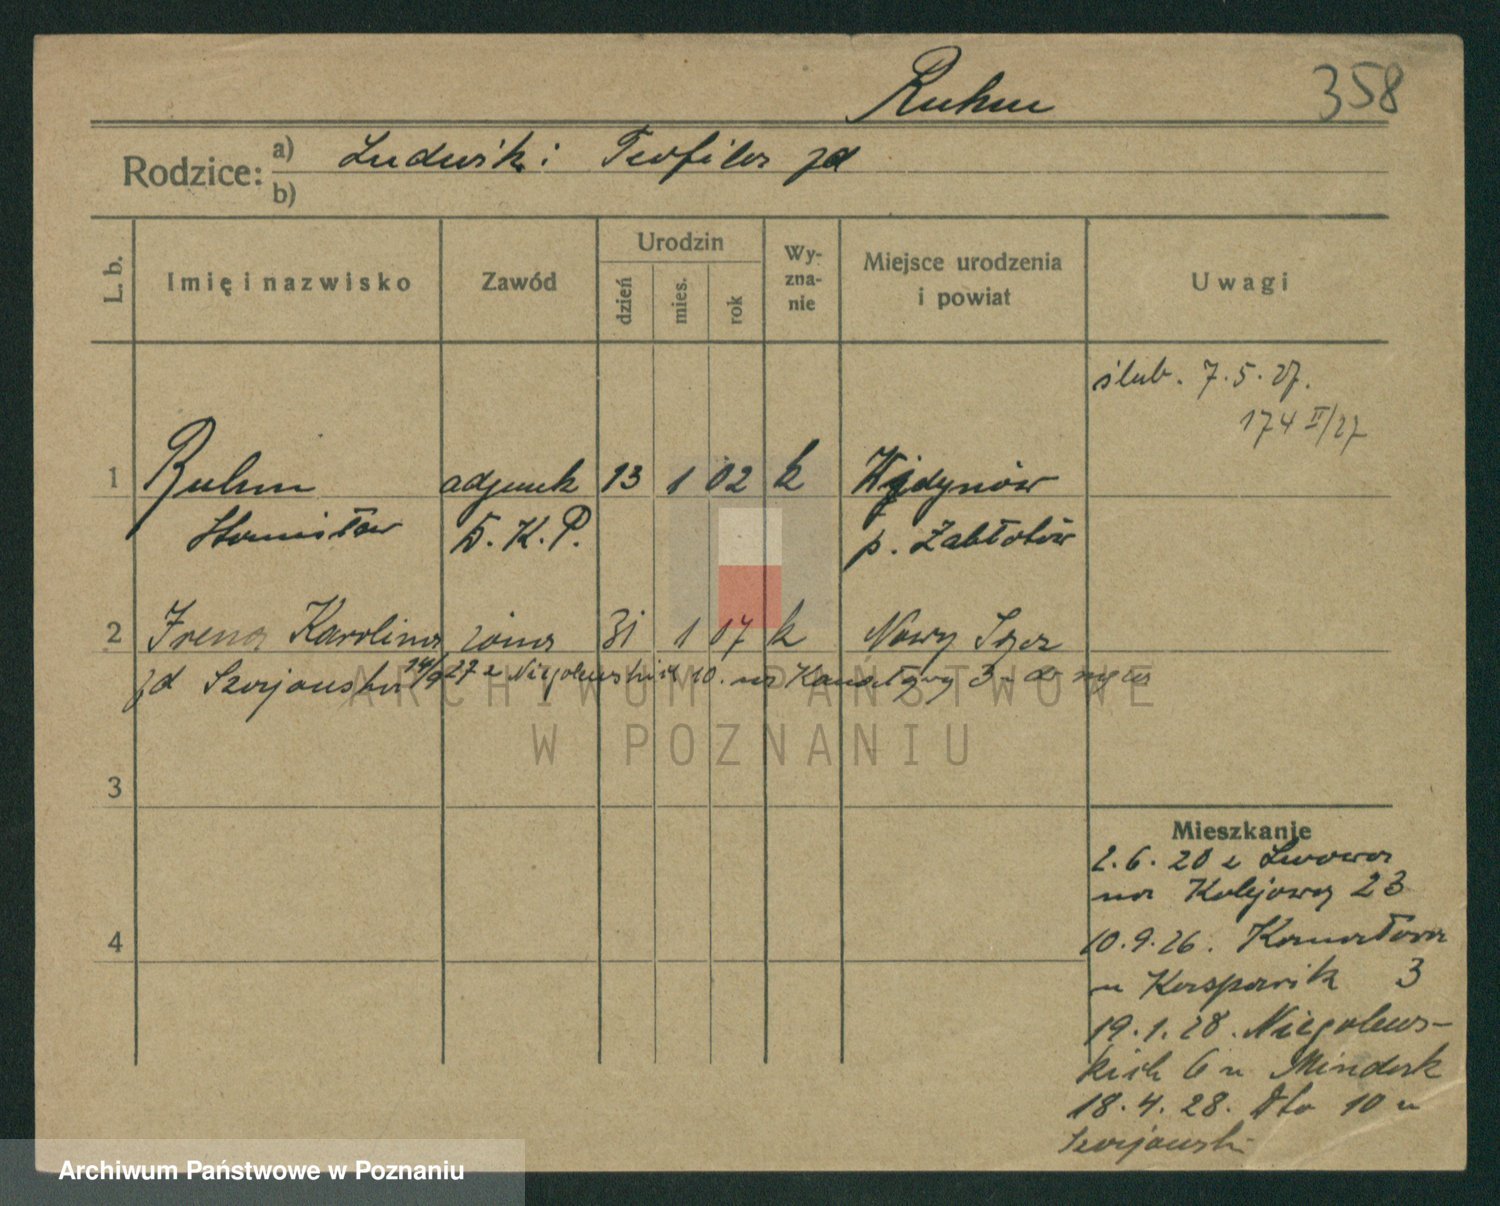 Ruhm 358
Rodzice: a) Ludwik i Teofila zd
b)
L. b. Imię i nazwisko Zawód Urodzin dzień mies. rok Wyznanie Miejsce urodzenia i powiat Uwagi
ślub. 7.5.27.
174 II/27
1 Ruhm adjunk 13 1 02 k Widynów
Stanisław D. K. P. p. Zabłotów
2 Irena Karolina żona 31 1 07 k Nowy Sącz
zd 14/9 27 z Niegolewskich 10. na Kanałową 3
ARCHIWUM PAŃSTWOWE
W POZNANIU
3
Mieszkanie
2.6.20 z Lwowa
na Kolejową 23
4
10.9.26. Kanałowa
u Kasprzik 3
19.1.28. Niegolews-
kich 6 u Minderk
18.4.28. Dto 10 u
Archiwum Państwowe w Poznaniu